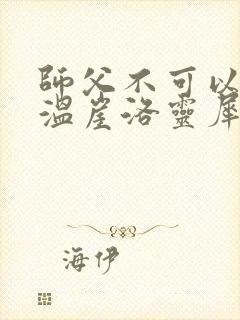 師父不可以
溫崖洛靈犀
海伊